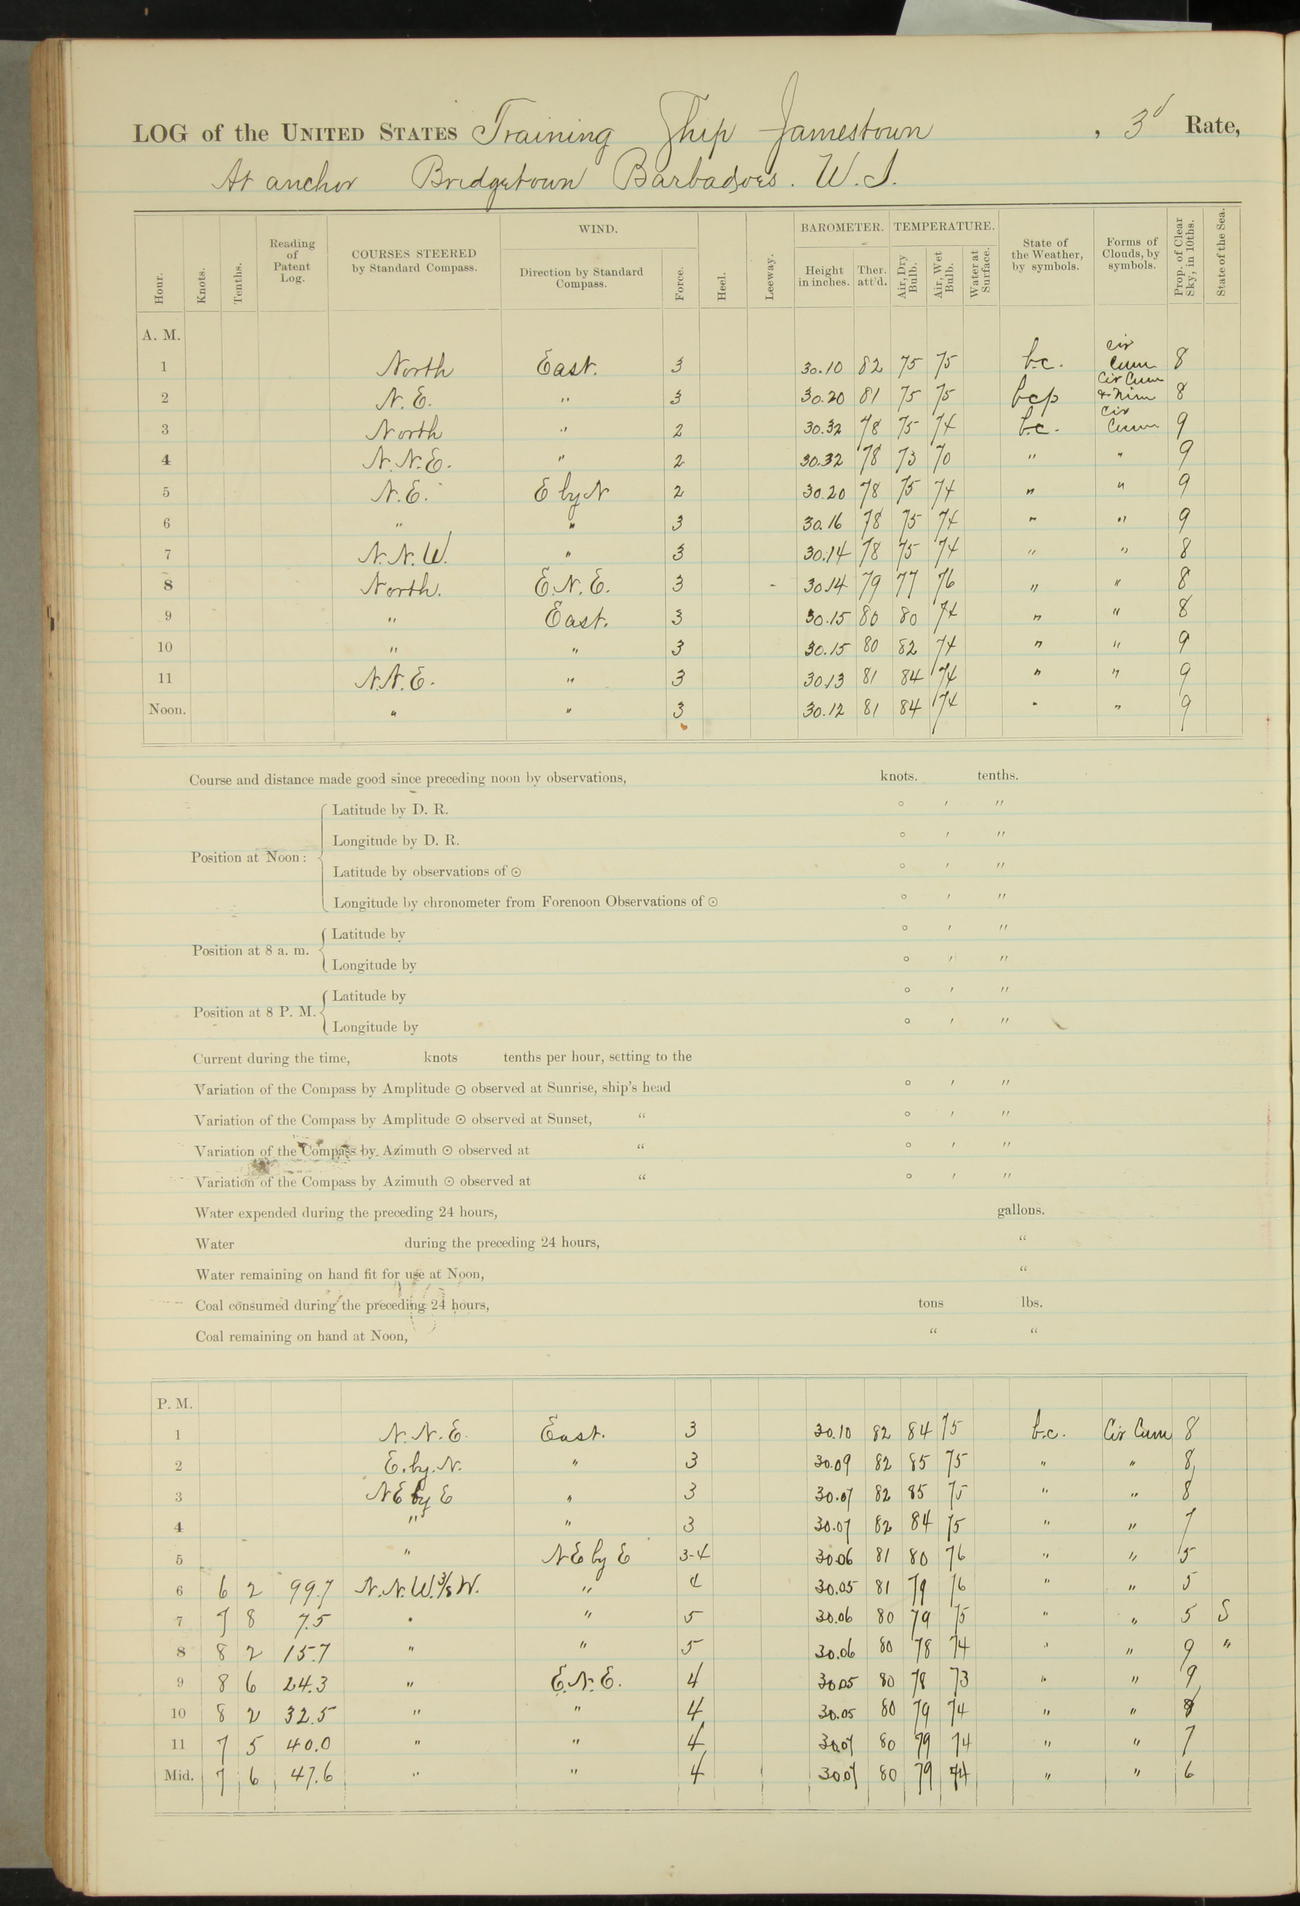 LOG of the UNITED STATES Training Ship Jamestown , 3d Rate,
At anchor Bridgetown Barbadoes. W.I.
Hour. Knots. Tenths. Reading of Patent Log. COURSES STEERED by Standard Compass. WIND. Direction by Standard Compass. Force. Heel. Leeway. BAROMETER. Height in inches. Ther. att'd. TEMPERATURE. Air, Dry Bulb. Air, Wet Bulb. Water at Surface. State of the Weather, by symbols. Forms of Clouds, by symbols. Prop. of Clear Sky, in 10ths. State of the Sea.
A. M.
1 North East. 3 30.10 82 75 75 b.c. cir cum 8
2 N.E. " 3 30.20 81 75 75 bcp Cir Cum & Nim 8
3 North " 2 30.32 78 75 74 b.c. cir cum 9
4 N.N.E. " 2 30.32 78 73 70 " " 9
5 N.E. E by N 2 30.20 78 75 74 " " 9
6 " " 3 30.16 78 75 74 " " 9
7 N.N.W. " 3 30.14 78 75 74 " " 8
8 North. E.N.E. 3 30.14 79 77 76 " " 8
9 " East. 3 30.15 80 80 74 " " 8
10 " " 3 30.15 80 82 74 " " 9
11 N.N.E. " 3 30.13 81 84 74 " " 9
Noon. " " 3 30.12 81 84 74 " " 9
Course and distance made good since preceding noon by observations, knots. tenths.
Position at Noon:
Latitude by D. R. ° ′ ″
Longitude by D. R. ° ′ ″
Latitude by observations of ⊙ ° ′ ″
Longitude by chronometer from Forenoon Observations of ⊙ ° ′ ″
Position at 8 a. m.
Latitude by ° ′ ″
Longitude by ° ′ ″
Position at 8 P. M.
Latitude by ° ′ ″
Longitude by ° ′ ″
Current during the time, knots tenths per hour, setting to the
Variation of the Compass by Amplitude ⊙ observed at Sunrise, ship's head ° ′ ″
Variation of the Compass by Amplitude ⊙ observed at Sunset, “ ° ′ ″
Variation of the Compass by Azimuth ⊙ observed at “ ° ′ ″
Variation of the Compass by Azimuth ⊙ observed at “ ° ′ ″
Water expended during the preceding 24 hours, gallons.
Water during the preceding 24 hours, “
Water remaining on hand fit for use at Noon, “
Coal consumed during the preceding 24 hours, tons lbs.
Coal remaining on hand at Noon, “ “
P. M.
1 N.N.E. East. 3 30.10 82 84 75 b.c. Cir Cum 8
2 E. by. N. " 3 30.09 82 85 75 " " 8
3 NE by E " 3 30.07 82 85 75 " " 8
4 " " 3 30.07 82 84 75 " " 7
5 " NE by E 3-4 30.06 81 80 76 " " 5
6 6 2 99.7 N.N.W.3/8 W. " 4 30.05 81 79 76 " " 5
7 7 8 7.5 " " 5 30.06 80 79 75 " " 5 S
8 8 2 15.7 " " 5 30.06 80 78 74 " " 9 "
9 8 6 24.3 " E.N.E. 4 30.05 80 78 73 " " 9
10 8 2 32.5 " " 4 30.05 80 79 74 " " 8
11 7 5 40.0 " " 4 30.07 80 79 74 " " 7
Mid. 7 6 47.6 " " 4 30.07 80 79 74 " " 6